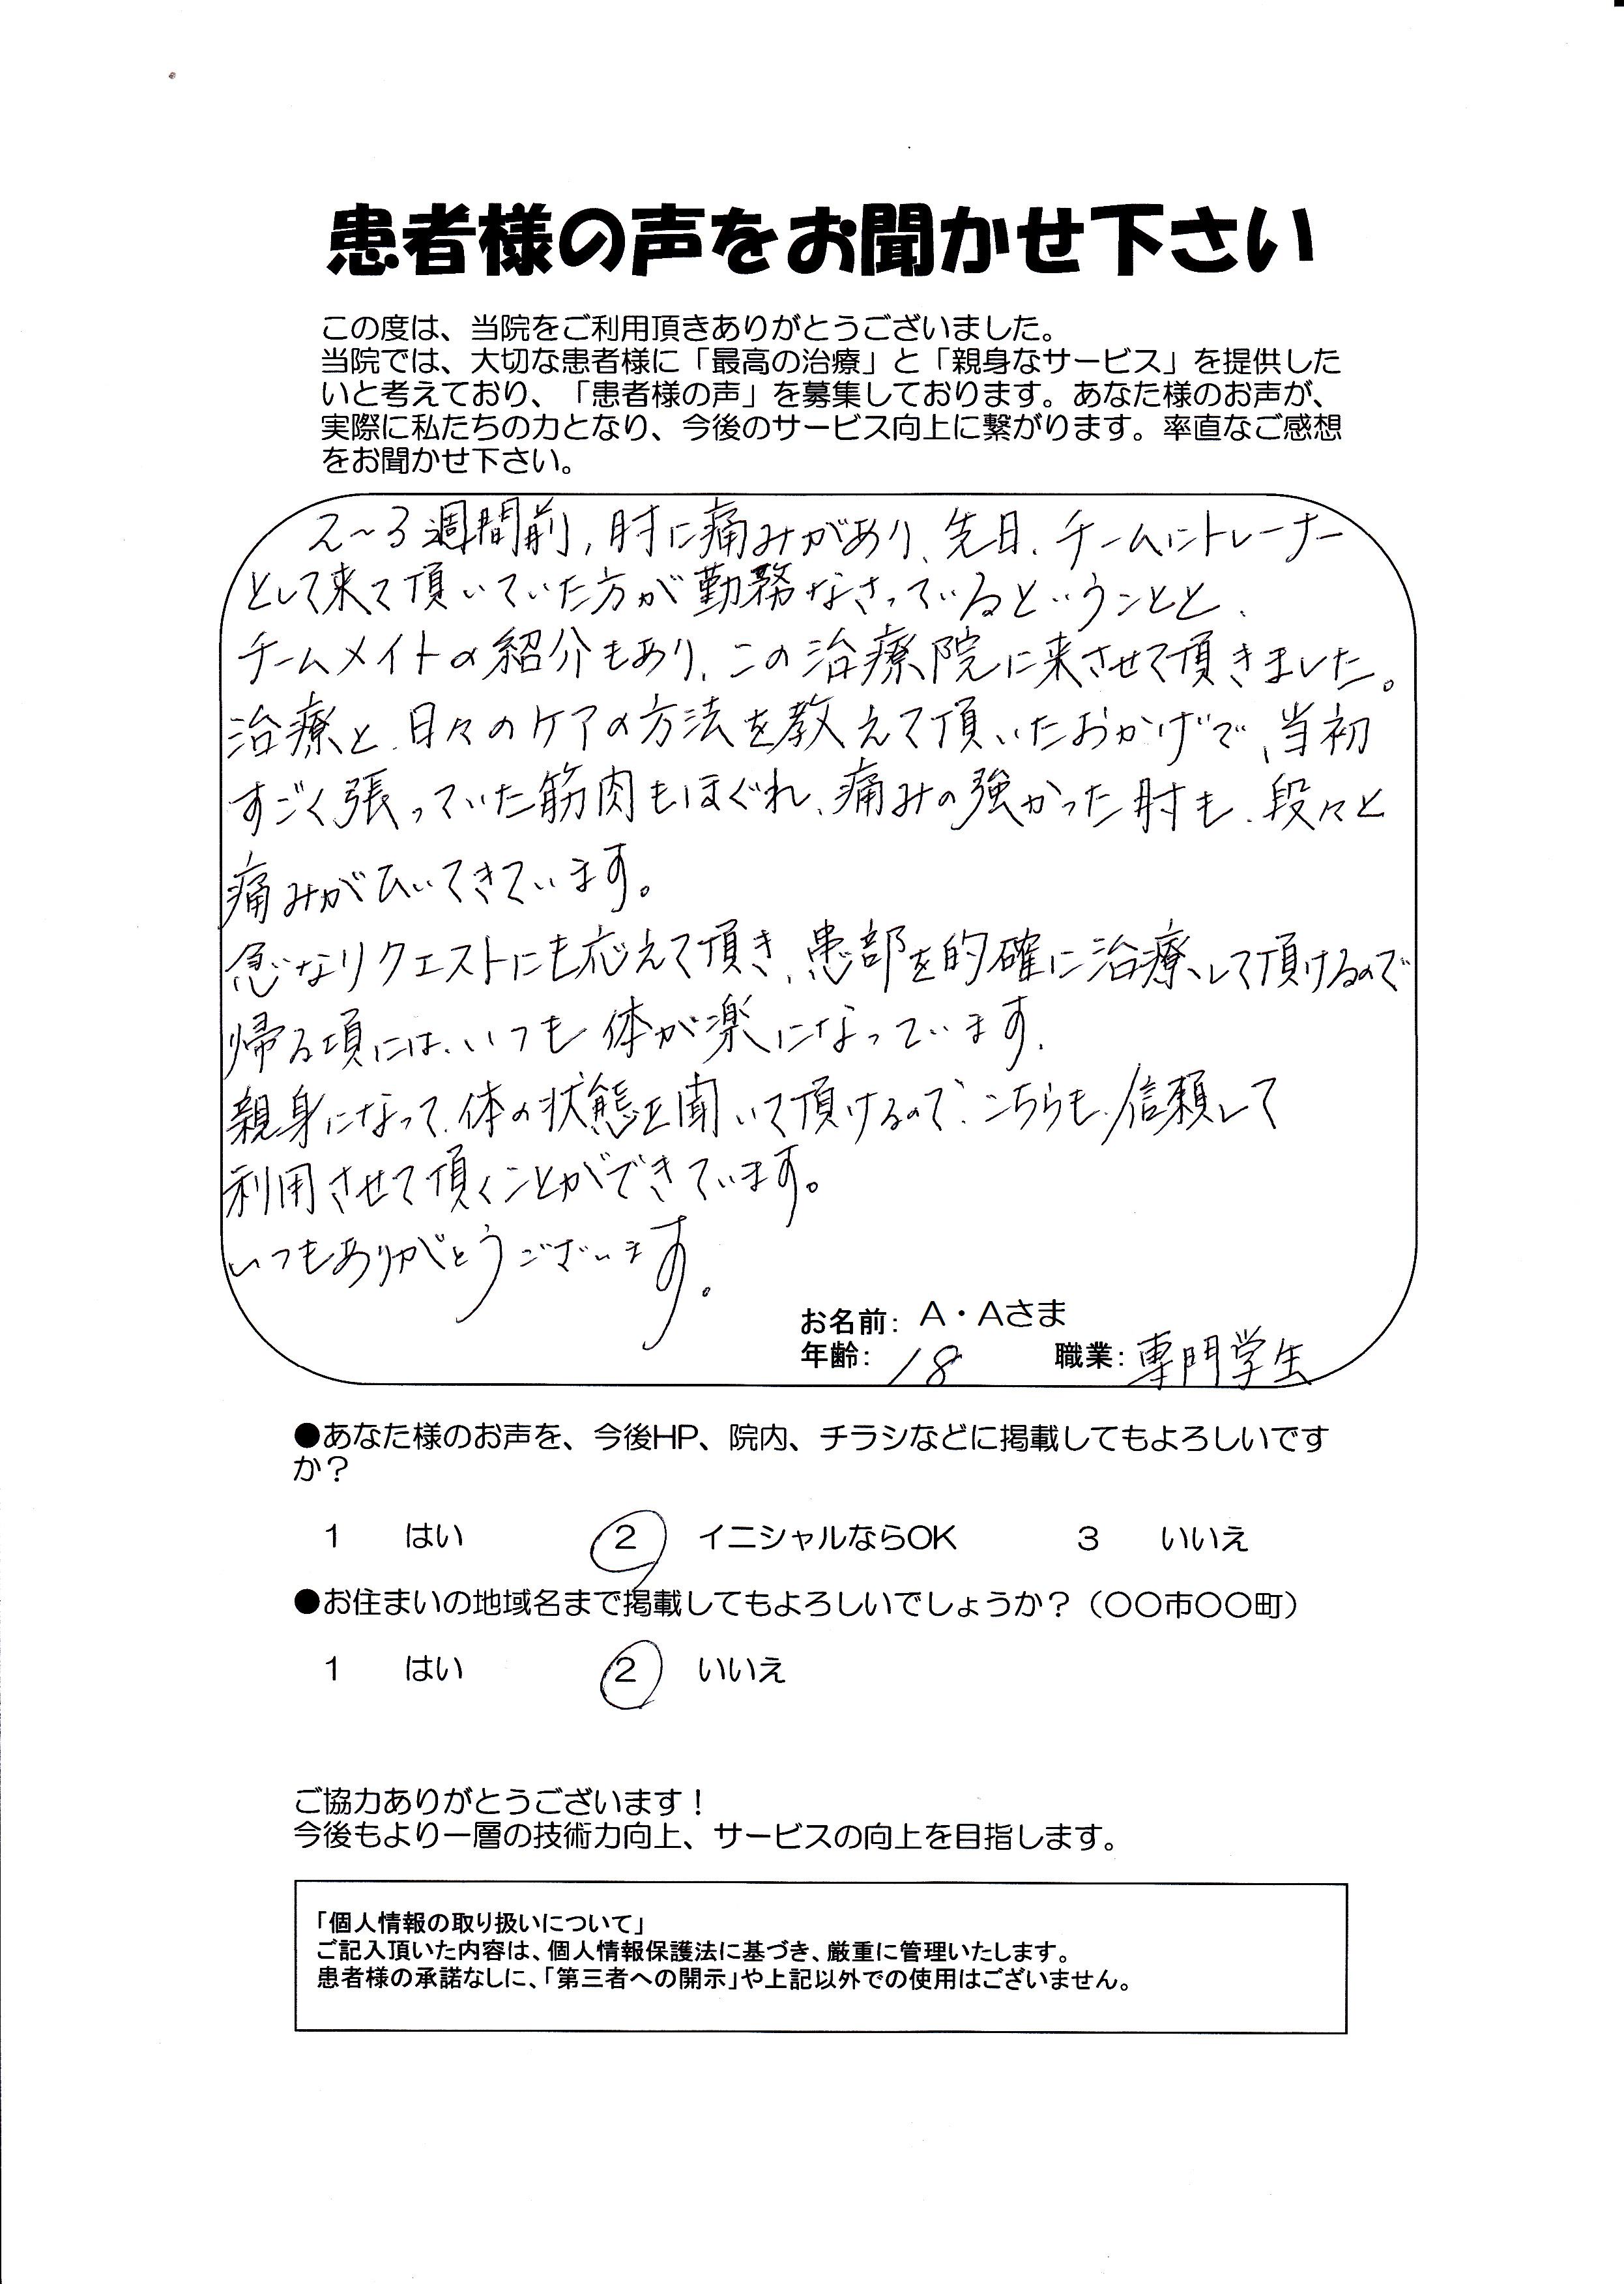 患者様の声をお聞かせ下さい
この度は、当院をご利用頂きありがとうございました。
当院では、大切な患者様に「最高の治療」と「親身なサービス」を提供した
いと考えており、「患者様の声」を募集しております。あなた様のお声が、
実際に私たちの力となり、今後のサービス向上に繋がります。率直なご感想
をお聞かせ下さい。
2〜3週間前、肘に痛みがあり、先日、チームにトレーナー
として来て頂いていた方が勤務なさっているということと、
チームメイトの紹介もあり、この治療院に来させて頂きました。
治療と、日々のケアの方法を教えて頂いたおかげで、当初
すごく張っていた筋肉もほぐれ、痛みの強かった肘も、段々と
痛みがひいてきています。
急なリクエストにも応えて頂き、患部を的確に治療して頂けるので
帰る頃には、いつも体が楽になっています。
親身になって、体の状態を聞いて頂けるので、こちらも、信頼して
利用させて頂くことができています。
いつもありがとうございます。
お名前: A・Aさま
年齢: 18 職業: 専門学生
●あなた様のお声を、今後HP、院内、チラシなどに掲載してもよろしいです
か？
1 はい 2 イニシャルならOK 3 いいえ
●お住まいの地域名まで掲載してもよろしいでしょうか？（〇〇市〇〇町）
1 はい 2 いいえ
ご協力ありがとうございます！
今後もより一層の技術力向上、サービスの向上を目指します。
「個人情報の取り扱いについて」
ご記入頂いた内容は、個人情報保護法に基づき、厳重に管理いたします。
患者様の承諾なしに、「第三者への開示」や上記以外での使用はございません。